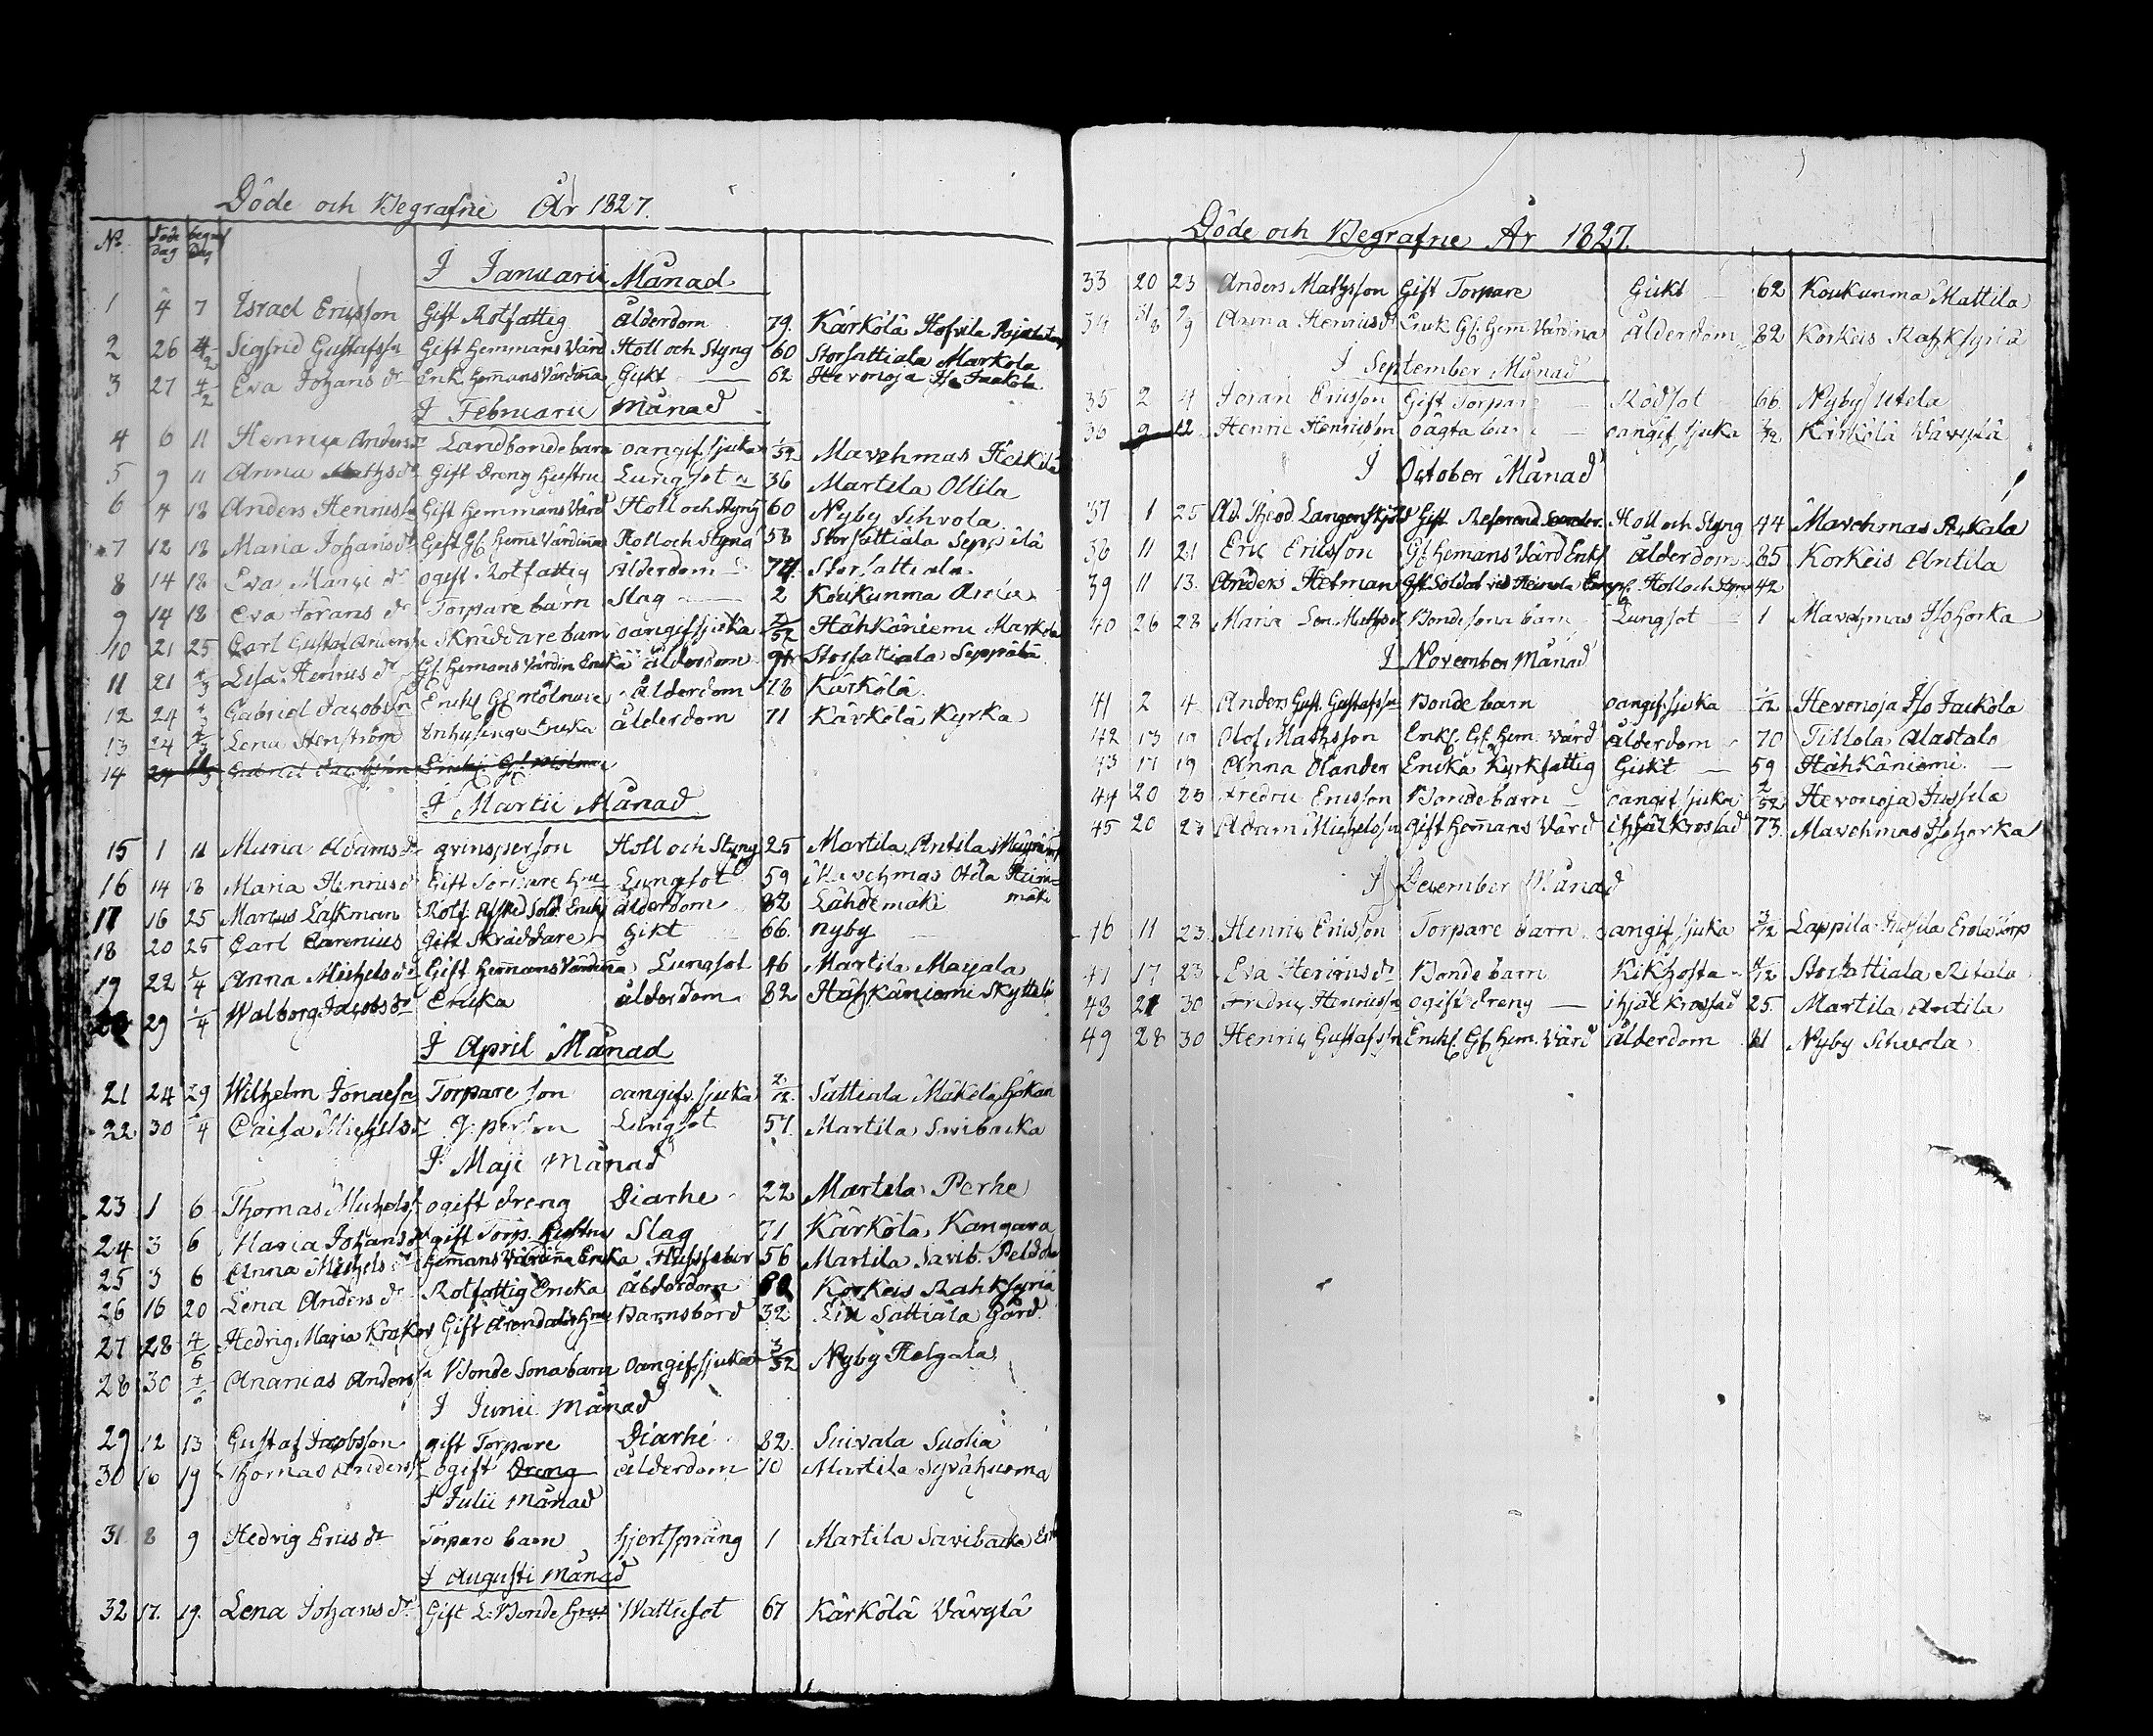 Döde och Begrafne År 1827.
No. Döde Dag begraf Dag
I Januarii Månad
1 4 7 Israel Ericsson Gift Rotfattig ålderdom 79. Kärkölä Hofvila
2 26 4/2 Sigfrid Gustafssn Gift Hemmans Värd Holl och Styng 60 Storsattiala Markola
3 27 4/2 Eva Johans dr Enk. Hemmans Värdinna Gikt 62 Hevonoja Iso Jackola
I Februarii Månad
4 6 11 Henric Anders Landbonde barn oangif. sjuka 1/52 Mavehmas Heikilä
5 9 11 Anna Mathsdr Gift Dreng Hustru Lungsot 36 Martila Ollila
6 4 18 Anders Henricssn Gift Hemmans Värd Holl och Styng 60 Nyby Schvola
7 12 18 Maria Johansdr Gift Gl. Hems Värdinna Holl och Styng 58 Storsattiala Seppälä
8 14 18 Eva dr ogift Rotfattig Ålderdom 74 Storsattiala
9 14 18 Eva Jörans dr Torpare barn Slag 2 Koukunma
10 21 25 Carl Gustaf Anderssn Skräddare barn oangif sjuka 2/52 Hähkäniemi Markola
11 21 4/3 Lisa Henrics dr Gl. Hemans Värdin Encka ålderdom 91 Storsattiala Seppälä
12 24 4/3 Gabriel Jacobssn Enkl Gl Mölnare Ålderdom 78 Kärkölä
13 24 4/3 Lena Henström Inhysinge Encka ålderdom 71 Kärkölä Kyrka
14 24 4/3 Gabriel Jacobsson Enkl Gl. Mölnare
I Martii Månad
15 1 11 Maria Adams dr qvinsperson Holl och Styng 25 Martila Antila
16 14 18 Maria Henricsdr Gift Torpare Hru Lungsot 59 Mavehmas Otila Heinämäki
17 16 25 Marcus Laskman Rotf. Afsked Sold. Enkl ålderdom 82 Lähdemäki
18 20 25 Carl Carenius Gift Skräddare Gikt 66. Nyby
19 22 1/4 Anna Michelsdr Gift Hemmans Värdinna Lungsot 46 Martila Maijala
20 29 1/4 Walborg Jacobsdr Encka ålderdom 82 Hähkäniemi Skyttelä
I April Månad
21 24 29 Wilhelm Jonaessn Torpare son oangif. sjuka 2/12 Sattiala Mäkelä Hökan
22 30 /4 Caisa Michelsdr Q. person Lungsot 57 Martila Savibacka
I Maji Månad
23 1 6 Thomas Michelss ogift dreng Diarhe 22 Martila Perhe
24 3 6 Maria Johans dr gift Torp. Hustru Slag 71 Kärkölä Kangara
25 3 6 Anna Michels dr Hemmans Värdinna Encka 56 Martila Savib. Peldola
26 16 20 Lena Anders dr Rotfattig Encka ålderdom 80 Korkeis Rahksyriä
27 28 4/6 Hedvig Maria Gift Hru Barnsbörd 32 Lill Sattiala Gård
28 30 4/6 Ananias Anderssn Bonde Sona barn Oangif sjuka 3/52 Nyby Helgala
I Junii Månad
29 12 13 Gustaf Jacobsson gift Torpare Diarhé 82. Suivala Suolia
30 16 19 Thomas Anderss ogift Dreng ålderdom 70 Martila Syvähuoma
I Julii Månad
31 8 9 Hedvig Erics dr Torpare barn hjertsprång 1 Martila Savibacka
I Augusti Månad
32 17. 19. Lena Johans dr Gift L. Bonde Hru Wattusot 67 Kärkölä Vävylä
Döde och Begrafne År 1827.
33 20 23 Anders Mathsson Gift Torpare Gickt 62 Koukunma Mattila
34 31/8 9/9 Anna Henricsdr Enck. Gl. Hem. Värdina Ålderdom 82 Korkeis Rahksyriä
I September Månad
35 2 4 Jöran Ericsson Gift Torpare Rödsot 66. Nyby Utela
36 9 12 Henric Henricssn oägta barn oangif. sjuka Kärkölä Vävylä
I October Månad
37 1 25 Ad. Theod Langenskjöld Gift Referend. Holl och Styng 44 Mavehmas Ackala
38 11 21 Eric Ericsson Gl. Hemans Värd Enkl Ålderdom 85 Korkeis Antila
39 11 13. Anders Helman Gift Soldat vid Heinola Comp. Holl och Styng 42
40 26 28 Maria Mathsd Bondesona barn Lungsot 1 Mavehmas Isohorka
I November Månad
41 2 4 Anders Gust. Gustafssn Bonde barn oangif. sjuka 1/12 Hevonoja Iso Jackola
42 13 19 Olof Mathsson Enkl. Gl. Hem. Värd ålderdom 70 Tillola Alastalo
43 17 19 Anna Olander Encka Kyrkfattig Gickt 59 Hähkäniemi
44 20 23 Fredric Ericsson Bonde barn oangif. sjuka 2/52 Hevonoja Jussila
45 20 23 Adam Michelssn Gift Hemans Värd ihjäl krossad 73. Mavehmas Isohorka
I December Månad
46 11 23 Henric Ericsson Torpare barn oangif. sjuka 3/12 Lappila Jussila Erola Torp
47 17 23 Eva Henricsdr Bonde barn Kikhosta 4/12 Storsattiala Ritala
48 27 30 Fredric Henricssn ogift dreng ihjäl krossad 25. Martila Antila
49 28 30 Henric Gustafssn Enkl. Gl. Hem. Värd ålderdom 81 Nyby Schvola